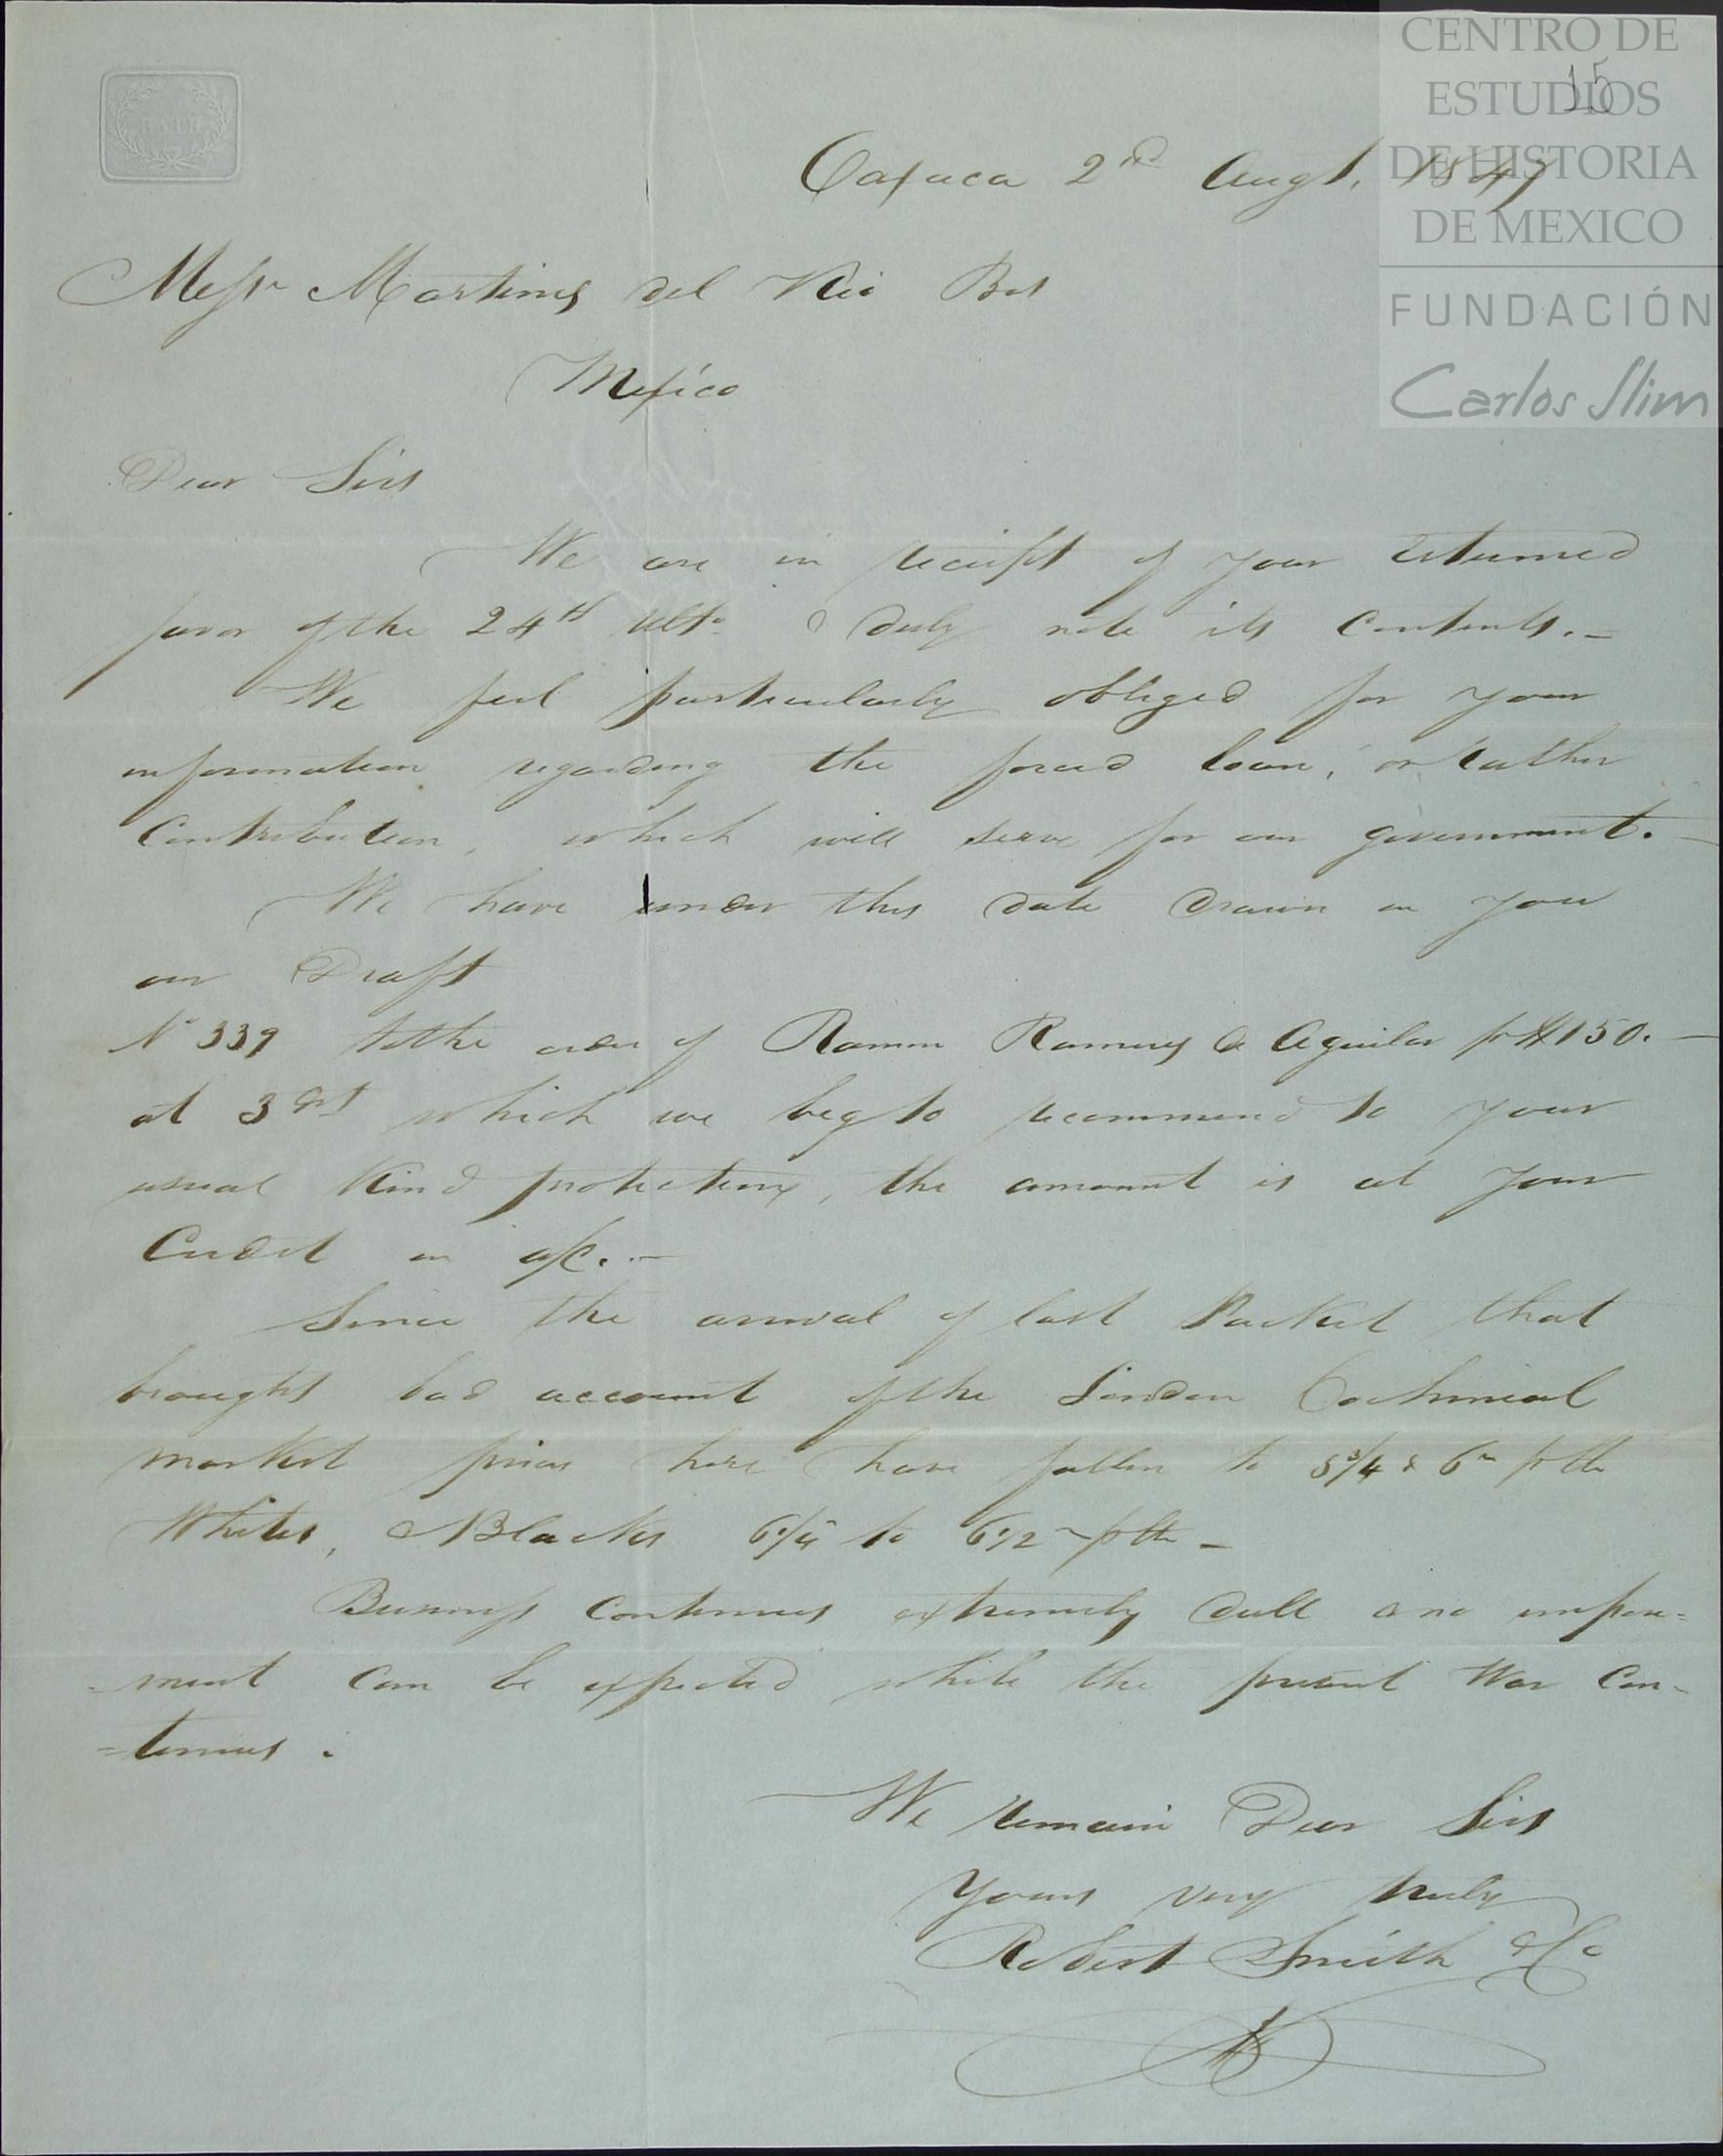 CENTRO DE
ESTUDIOS
DE HISTORIA
DE MEXICO
FUNDACIÓN
Carlos Slim
15
BATH
Oaxaca 2nd Augt. 1847
Messrs Martinez del Rio Bos
Mexico
Dear Sirs
We are in receipt of your esteemed
favor of the 24th Ulto. & duly note its contents. _
We feel particularly obliged for your
information regarding the forced loan, or rather
Contribution, which will serve for our government. _
We have under this date drawn on you
our Draft
No 339 to the order of Ramon Ramirez de Aguilar for $150. _
at 3 ds which we beg to recommend to your
usual Kind protection, the amount is at your
Credit in a/c. _
Since the arrival of last Packet that
brought bad account of the London Cochineal
market prices here have fallen to 5 3/4 & 6 rs p lb
Whites, & Blacks 6 1/4 to 6 1/2 rs p lb _
Business continues extremely dull & no improve=
=ment can be expected while the present War Con-
=tinues.
We remain Dear Sirs
Yours very truly
Robert Smith & Co